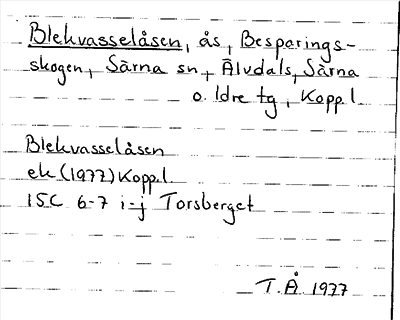 Blekvasselåsen, ås, Besparings-
skogen, Särna sn, Älvdals, Särna
o. Idre tg, Koppl.
Blekvasselåsen
ek (1977) Koppl.
15C 6-7 i-j Torsberget
T.Å. 1977